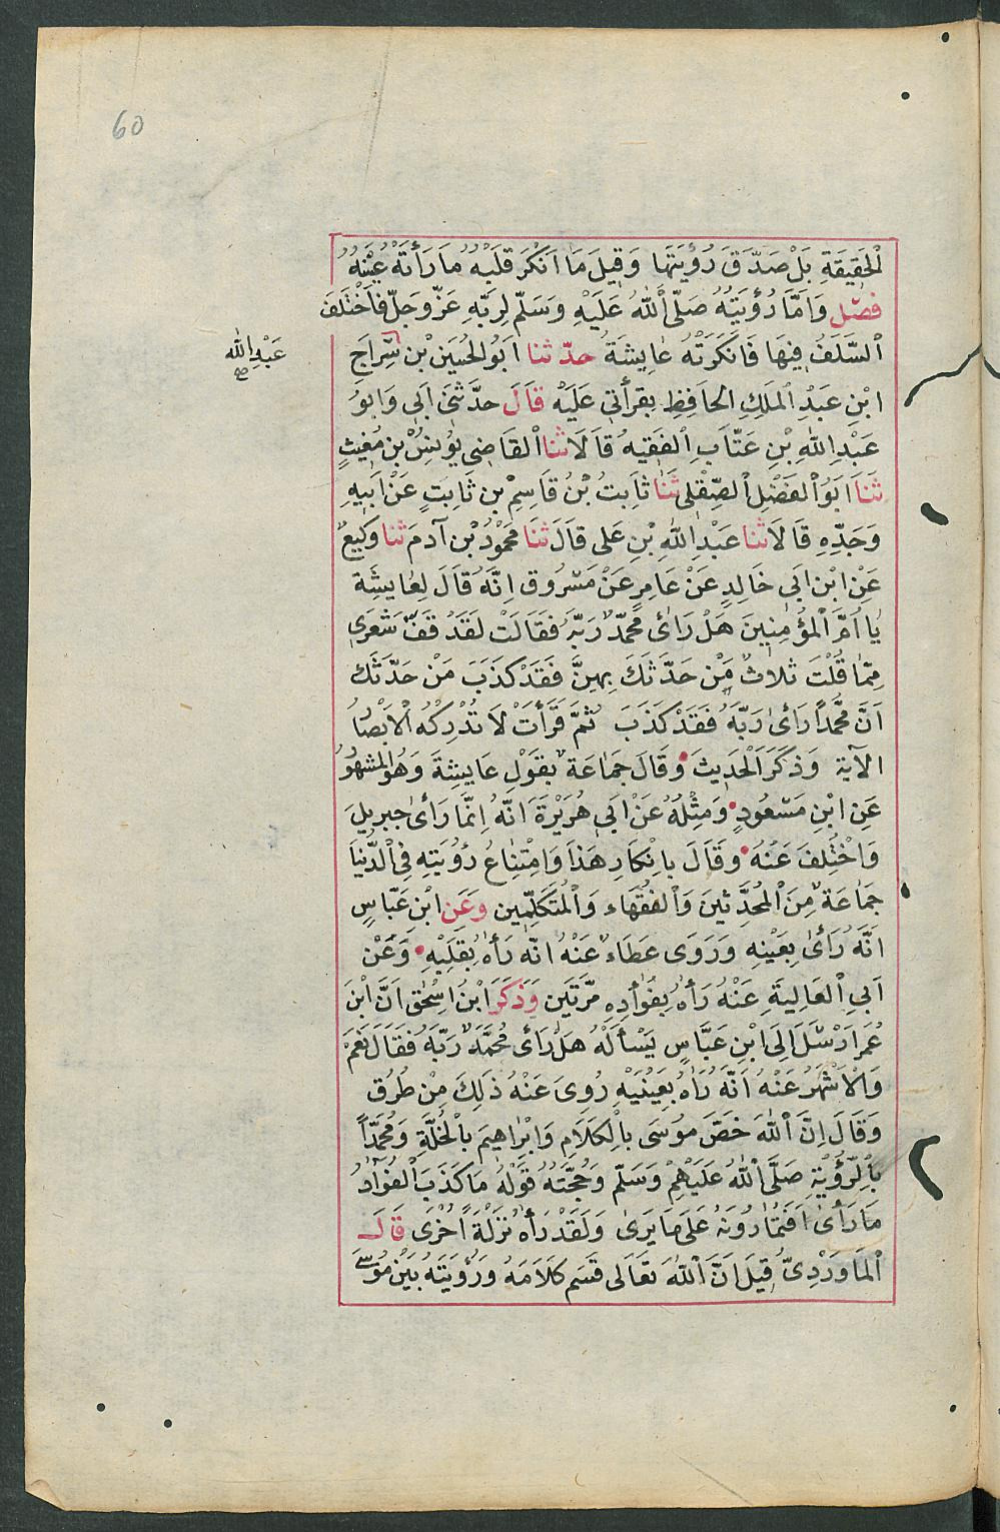 60
اْلحَقِيقَةِ بَلْ صَدَّقَ رُؤْيَتَهَا وَقِيلَ مَا اَنْكَرَ قَلْبُهُ مَا رَأَتْهُ عَيْنُهُ
فصْل وَاَمَّا رُؤْيَتُهُ صَلّى اللهُ عَلَيْهِ وَسَلّم لِرَبِّهِ عَزّ وَجَلّ فَاخْتَلَفَ
السَّلَفُ فِيهَا فَاَنْكَرَتْهُ عَايِشَةُ حدّثنا اَبُو الحُسَيَن بْن سِّرَاج
عَبْدِ الله صح
ابْنِ عَبْدِ المَلِكِ الحَافِظ بِقرَأتى عَلَيْه قَالَ حدَّثَنَى اَبِى وَاَبوُ
عَبْدِ اللهِ بْنِ عَتّاَب الفَقِيهُ قَالَا ثنا القَاضِى يوُنسُ بْن مُغِيثٍ
ثَنَا اَبوُ الفَضْلِ الصِّقْلِى ثَنَا ثَابِتُ بْنُ قَاسِمْ بن ثَابِتٍ عَنْ اَبِيهِ
وَجَدِّهِ قَالَا ثنا عَبْدِ اللهِ بْنِ عَلى قَالَ ثنَا مَحْمُودُ بْن آدمَ ثنا وَكِيعٌ
عَنِ ابْن اَبى خَالِدٍ عَنْ عَامِرٍ عَنْ مَسْرُوق اِنَّهُ قَالَ لِعَايشَة
يَا اُمَّ المؤْمِنِينَ هَلْ رَائ محمّدٌ رَبَّهُ فقَالَتْ لَقَدْ قَفَّ شَعَرِى
مِمّا قُلْتَ ثلاثٌ مَنْ حَدَّثَكَ بِهِنَّ فَقَدْ كَذَبَ مَنْ حَدّثَك
اَنَّ مُحَّمداً رَائ رَبَّهُ فَقَدْ كَذَبَ ثُمَّ قَرَأَتْ لَا تُدْرِكْهُ الْاَبْصَارُ
الآية وَذَكَرَ الْحَدِيثَ وَقَالَ جَمَاعَةٌ بقَوْلِ عَايشَةَ وَهُوَ المشْهوُرُ
عَنِ ابْنِ مَسْعُودٍ وَمِثْلُهُ عَنْ اَبى هُرَيْرَةَ اَنّهُ اِنَّمَا رَأىٰ جبريلَ
وَاخْتُلِفَ عَنْهُ وَقَالَ بِاِنْكَارِ هَذَا وَامْتِنَاعُ رُؤيَتِهِ فِى الدُّنْيَا
جَمَاعَةٌ مِنَ الْمُحَدِّثينَ وَالْفُقَهَاء وَالْمُتَكَلِّمِين وَعَن ابْن عَبّاسٍ
اَنَّهُ رَأىٰ بِعَيْنِهِ وَرَوَى عَطَاءٌ عَنْهُ انّهُ رَأهُ بِقَلْبِهِ وَعَنْ
اَبِى الْعَالِيَةِ عَنْهُ رَأهُ بِفُؤَادِهِ مَرَّتَيَن وَذَكَرَ ابْنُ اسْحٰق اَنَّ ابْنَ
عُمَرَ اَرْسَلَ اِلَى ابْنِ عَبَّاسٍ يَسْألُهُ هَلْ رَائ مُحَمّدٌ رَبّهُ فَقَالَ نَعَمْ
وَالْاَشْهَرُ عَنْهُ اَنَّهُ رَأهُ بِعَيْنَيْهِ رُوِىَ عَنْهُ ذَلِكَ مِنْ طُرُق
وَقَالَ اِنَّ اللهَ خَصَّ موُسَى بِالْكَلَامِ وَابْراهِيمَ باْلخُلَّةِ وَمُحَمّداً
بِالرُّؤْيَةِ صَلَّى اللهُ عَلَيْهِمْ وَسَلّم وَحُجَّتَهُ قَوْلُهُ مَا كَذَبَ الفُؤَادُ
مَا رَأىٰ اَفَتُمَارُونَهُ عَلىَ مَا يَرىٰ وَلَقَدْ رَأهُ نَزْلَةً اُخْرَى قَالَ
الْمَاوَرْدِىُّ قِيلَ اَنَّ اللهَ تَعَالى قَسَم كَلَامَهُ وَرُؤْيَتَهُ بَيْنَ مُوسىٰ